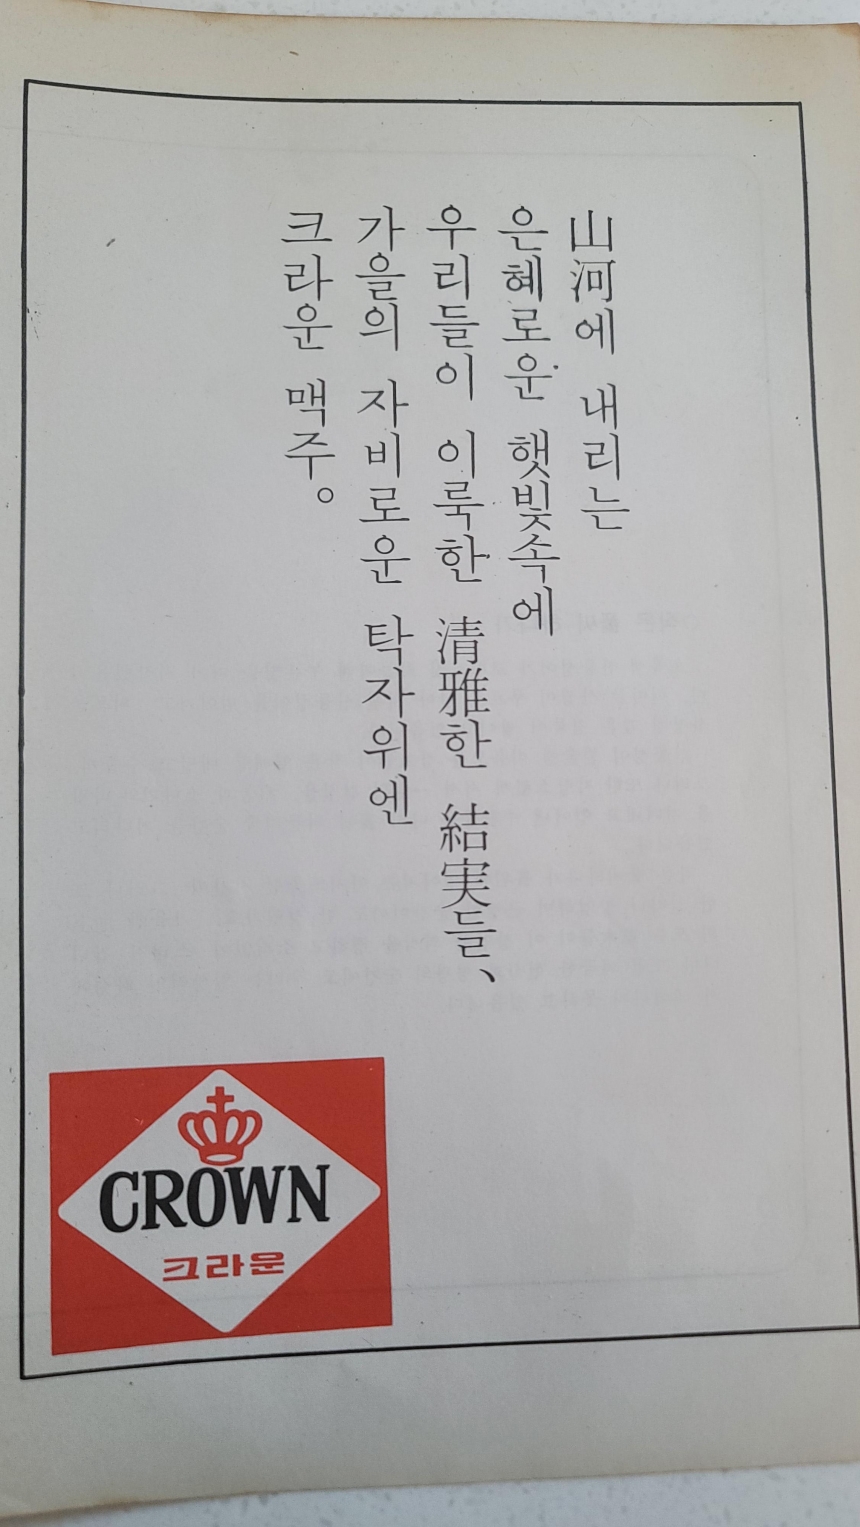 山河에 내리는
은혜로운 햇빛속에
우리들이 이룩한 清雅한 結実들、
가을의 자비로운 탁자위엔
크라운 맥주。
CROWN
크라운